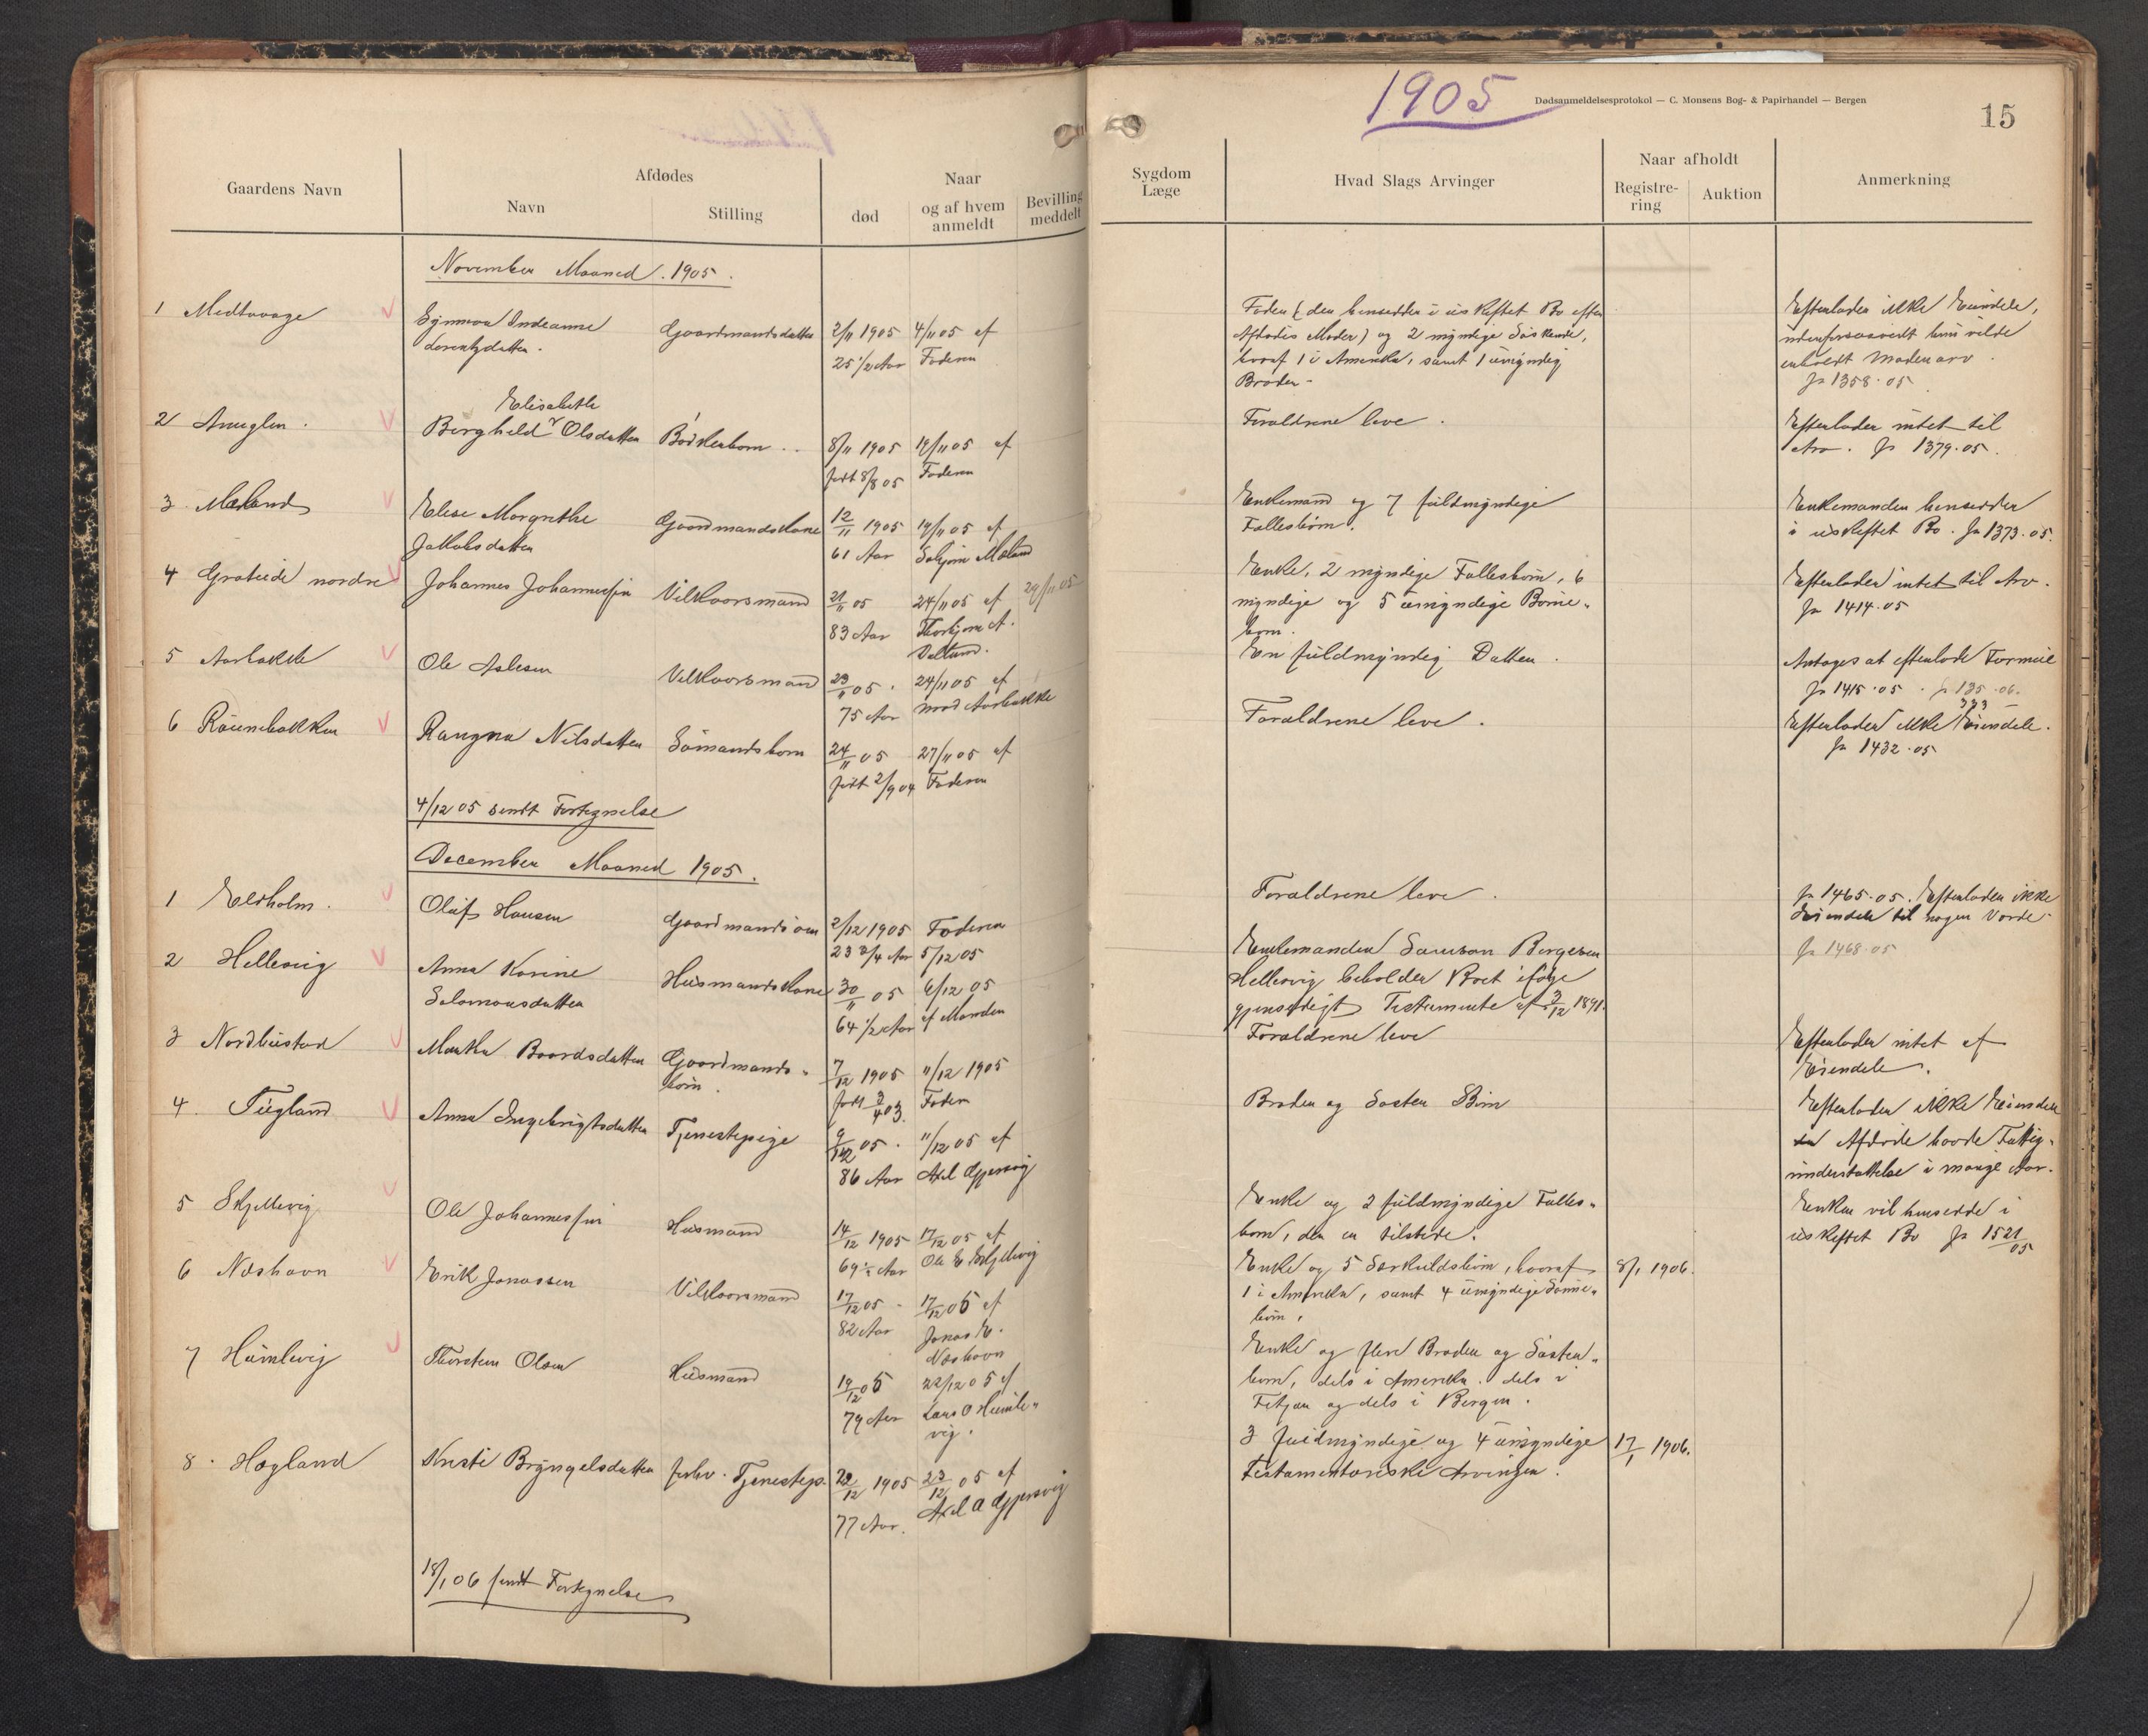 1905
Dødsanmeldelsesprotokol — C. Monsens Bog- & Papirhandel — Bergen
15
Gaardens Navn
Afdødes
Navn
Stilling
Naar
død
og af hvem anmeldt
Bevilling meddelt
Sygdom
Læge
Hvad Slags Arvinger
Naar afholdt
Registrering
Auktion
Anmerkning
November Maaned. 1905.
1 Medtvaage
Synnøva Indeanne
Lorentzdatter.
Gaardmandsdatter
2/11 1905
25 1/2 Aar
4/11 05 af
Faderen
Fader (der hensidder i uskiftet Bo efter
Afdødes Moder) og 2 myndige Søskende,
hvoraf 1 i Amerika, samt 1 umyndig
Broder.
Efterlader ikke Eiendele,
uden forsaavidt hun vilde
erholdt Mødrenarv.
Jr 1358.05
2 Anuglen.
Elisabeth
Borghild Olsdatter
Bødkerbarn
8/11 1905
født 8/8 05
14/11 05 af
Faderen
Forældrene leve.
Efterlader intet til
Arv. Jr 1379.05.
3 Mæland
Elise Margrethe
Jakobsdatter
Gaardmandskone
12/11 1905
61 Aar
14/11 05 af
Salgjøn Mæland
Enkemand og 7 fuldmyndige
Fællesbørn.
Enkemanden hensidder
i uskiftet Bo. Jr 1373.05.
4 Grøteide nordre
Johannes Johannessøn
Vilkaarsmand
21/11 05
83 Aar
24/11 05 af
Thorbjørn A.
29/11 05
Enke, 2 myndige Fællesbørn, 6
myndige og 5 umyndige Børnebørn.
Efterlader intet til Arv.
Jr 1414.05
5 Aarbakke
Ole Aslesen
Vilkaarsmand
23/11 05.
75 Aar
24/11 05 af
Aarbakke
En fuldmyndig Datter.
Antages at efterlade Formue
Jr 1415.05. Jr 135.06.
333
6 Røinebakken
Rangna Nilsdatter
Sømandsbarn
24/11 05
født 2/9 04
27/11 05 af
Faderen
Forældrene leve.
Efterlader ikke Eiendele.
Jr 1432.05
4/12 05 sendt Fortegnelse
December Maaned 1905.
1 Eldholm.
Oluf Hansen
Gaardmandssøn
2/12 1905
23 3/4 Aar
Faderen
5/12 05
Forældrene leve.
Jr 1465.05. Efterlader ikke
Eiendele til nogen Værdi
2 Hellevig
Anna Karine
Salomonsdatter
Husmandskone
30/11 05
64 1/2 Aar
6/12 05
af Manden
Enkemanden Samson Bergesen
Hellevig beholder Boet ifølge
gjensidigt Testamente af 3/12 1891.
Jr 1468.05
3 Nordbustad
Martha Baardsdatter
Gaardmandsbarn.
7/12 1905
født 3/4 03.
11/12 1905
Fader
Forældrene leve
Efterlader intet af
Eiendele.
4. Tugland
Anna Ingebrigtsdatter
Tjenestepige
9/12 05.
86 Aar
11/12 05 af
Axel Gjersvig
Broder og Søster Børn
Efterlader ikke Eiendele
Afdøde havde Fattigunderstøttelse i mange Aar.
5 Skjellevig
Ole Johannessøn
Husmand
14/12 1905
69 1/2 Aar
17/12 05 af
Ole E Skjellevig
Enke og 2 fuldmyndige Fællesbørn, der er tilstede.
Enken vil hensidde i
uskiftet Bo Jr 1521/05
6 Næshavn
Erik Jonassen
Vilkaarsmand
17/12 05.
82 Aar
17/12 05 af
Jonas E.
Næshavn
Enke og 5 Særkuldsbørn, hvoraf
1 i Amerika, samt 4 umyndige Sønnebørn.
8/1 1906.
7 Humlevig
Thorsten Olsen
Husmand
19/12 05
79 Aar
22/12 05 af
Lars O Humlevig.
Enke og flere Broder og Søsterbørn, dels i Amerika. dels i
Fitjar og dels i Bergen.
8. Hogland
Kristi Bryngelsdatter
forhv. Tjenestep.
22/12 1905
77 Aar.
23/12 05 af
Axel A Gjersvig
3 fuldmyndige og 4 umyndige
Testamentariske Arvinger.
17/1 1906.
18/1 06 sendt Fortegnelse